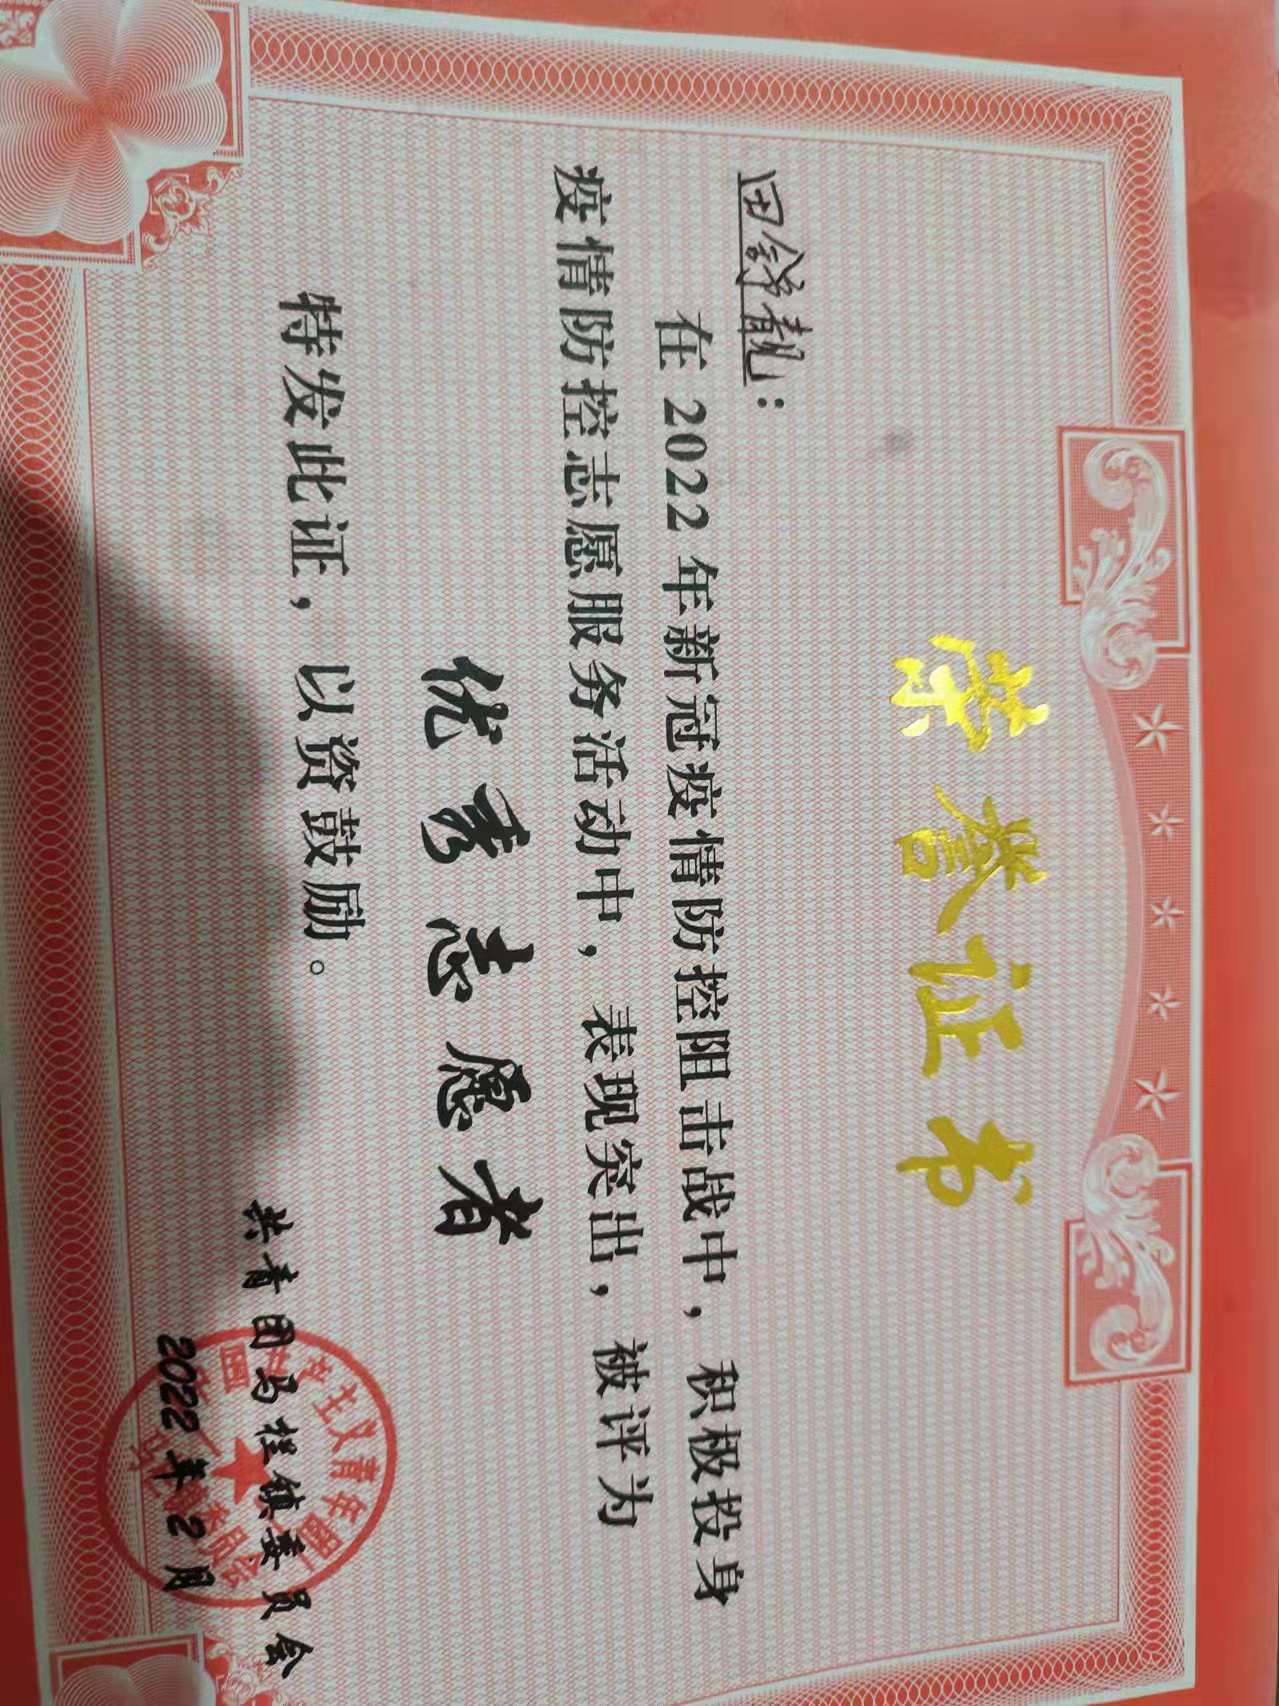 荣誉证书
田舒靓：
在2022年新冠疫情防控阻击战中，积极投身
疫情防控志愿服务活动中，表现突出，被评为
优秀志愿者
特发此证，以资鼓励。
共青团马栏镇委员会
2022年2月